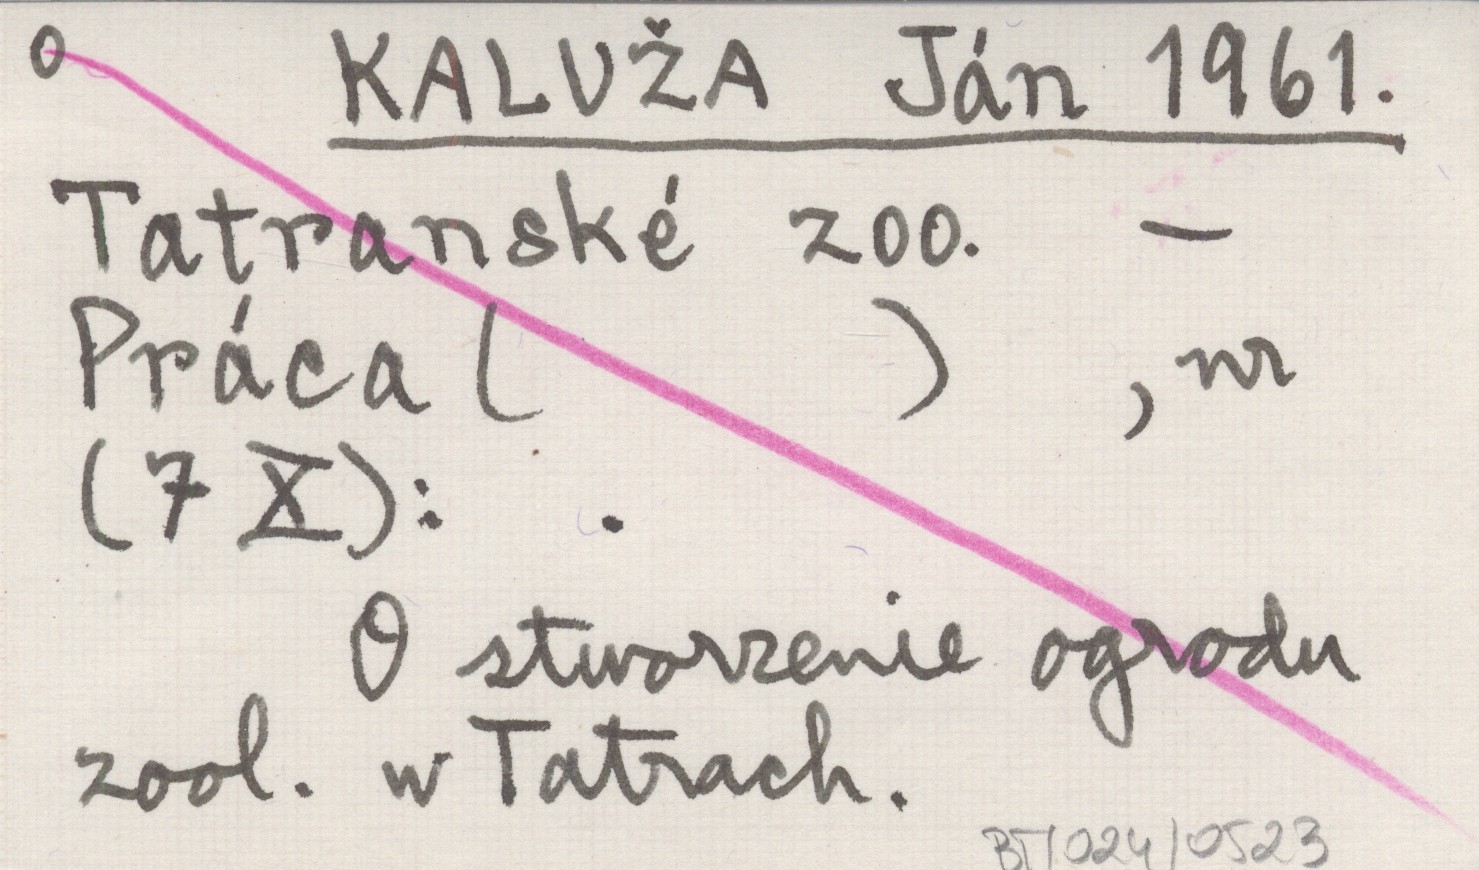 O KALUŽA Ján 1961.
Tatranské zoo. —
Práca ( ) , nr
(7 X): .
O stworzenie ogrodu
zool. w Tatrach.
BT/024/0523